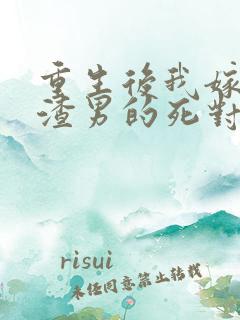 重生後我嫁
渣男的死對
risui
未任同意禁止转载